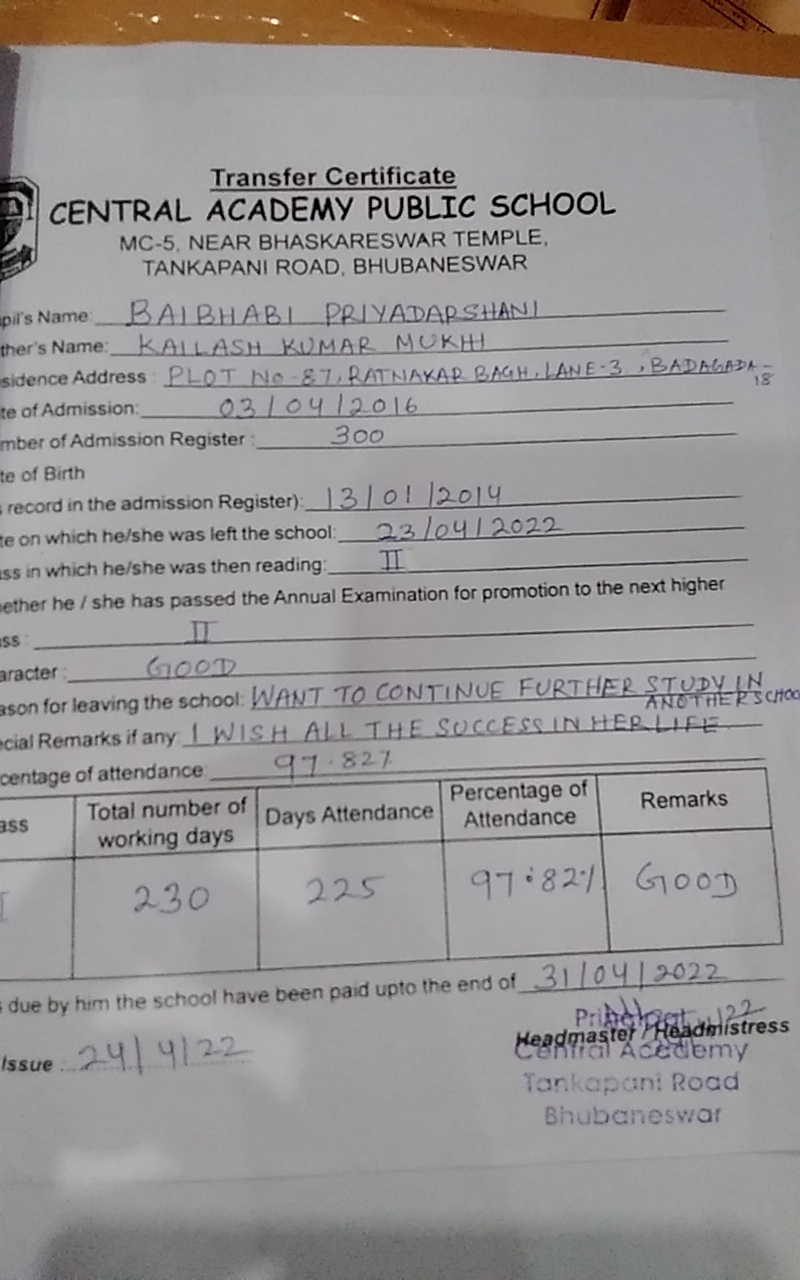 Transfer Certificate
CENTRAL ACADEMY PUBLIC SCHOOL
MC-5, NEAR BHASKARESWAR TEMPLE,
TANKAPANI ROAD, BHUBANESWAR
pil's Name: BAIBHABI PRIYADARSHANI
ther's Name: KAILASH KUMAR MUKHI
sidence Address : PLOT NO-87, RATNAKAR BAGH, LANE-3, BADAGADA-18
te of Admission: 03/04/2016
mber of Admission Register : 300
te of Birth
record in the admission Register): 13/01/2014
te on which he/she was left the school: 23/04/2022
ss in which he/she was then reading: II
ether he / she has passed the Annual Examination for promotion to the next higher
ss : II
aracter : GOOD
ason for leaving the school: WANT TO CONTINUE FURTHER STUDY IN
ANOTHER SCHOO
cial Remarks if any: I WISH ALL THE SUCCESS IN HER LIFE
centage of attendance: 97.82%
ass Total number of working days Days Attendance Percentage of Attendance Remarks
I 230 225 97.82% GOOD
s due by him the school have been paid upto the end of 31/04/2022
Principal
Headmaster / Headmistress
Issue : 24/4/22
Central Academy
Tankapani Road
Bhubaneswar